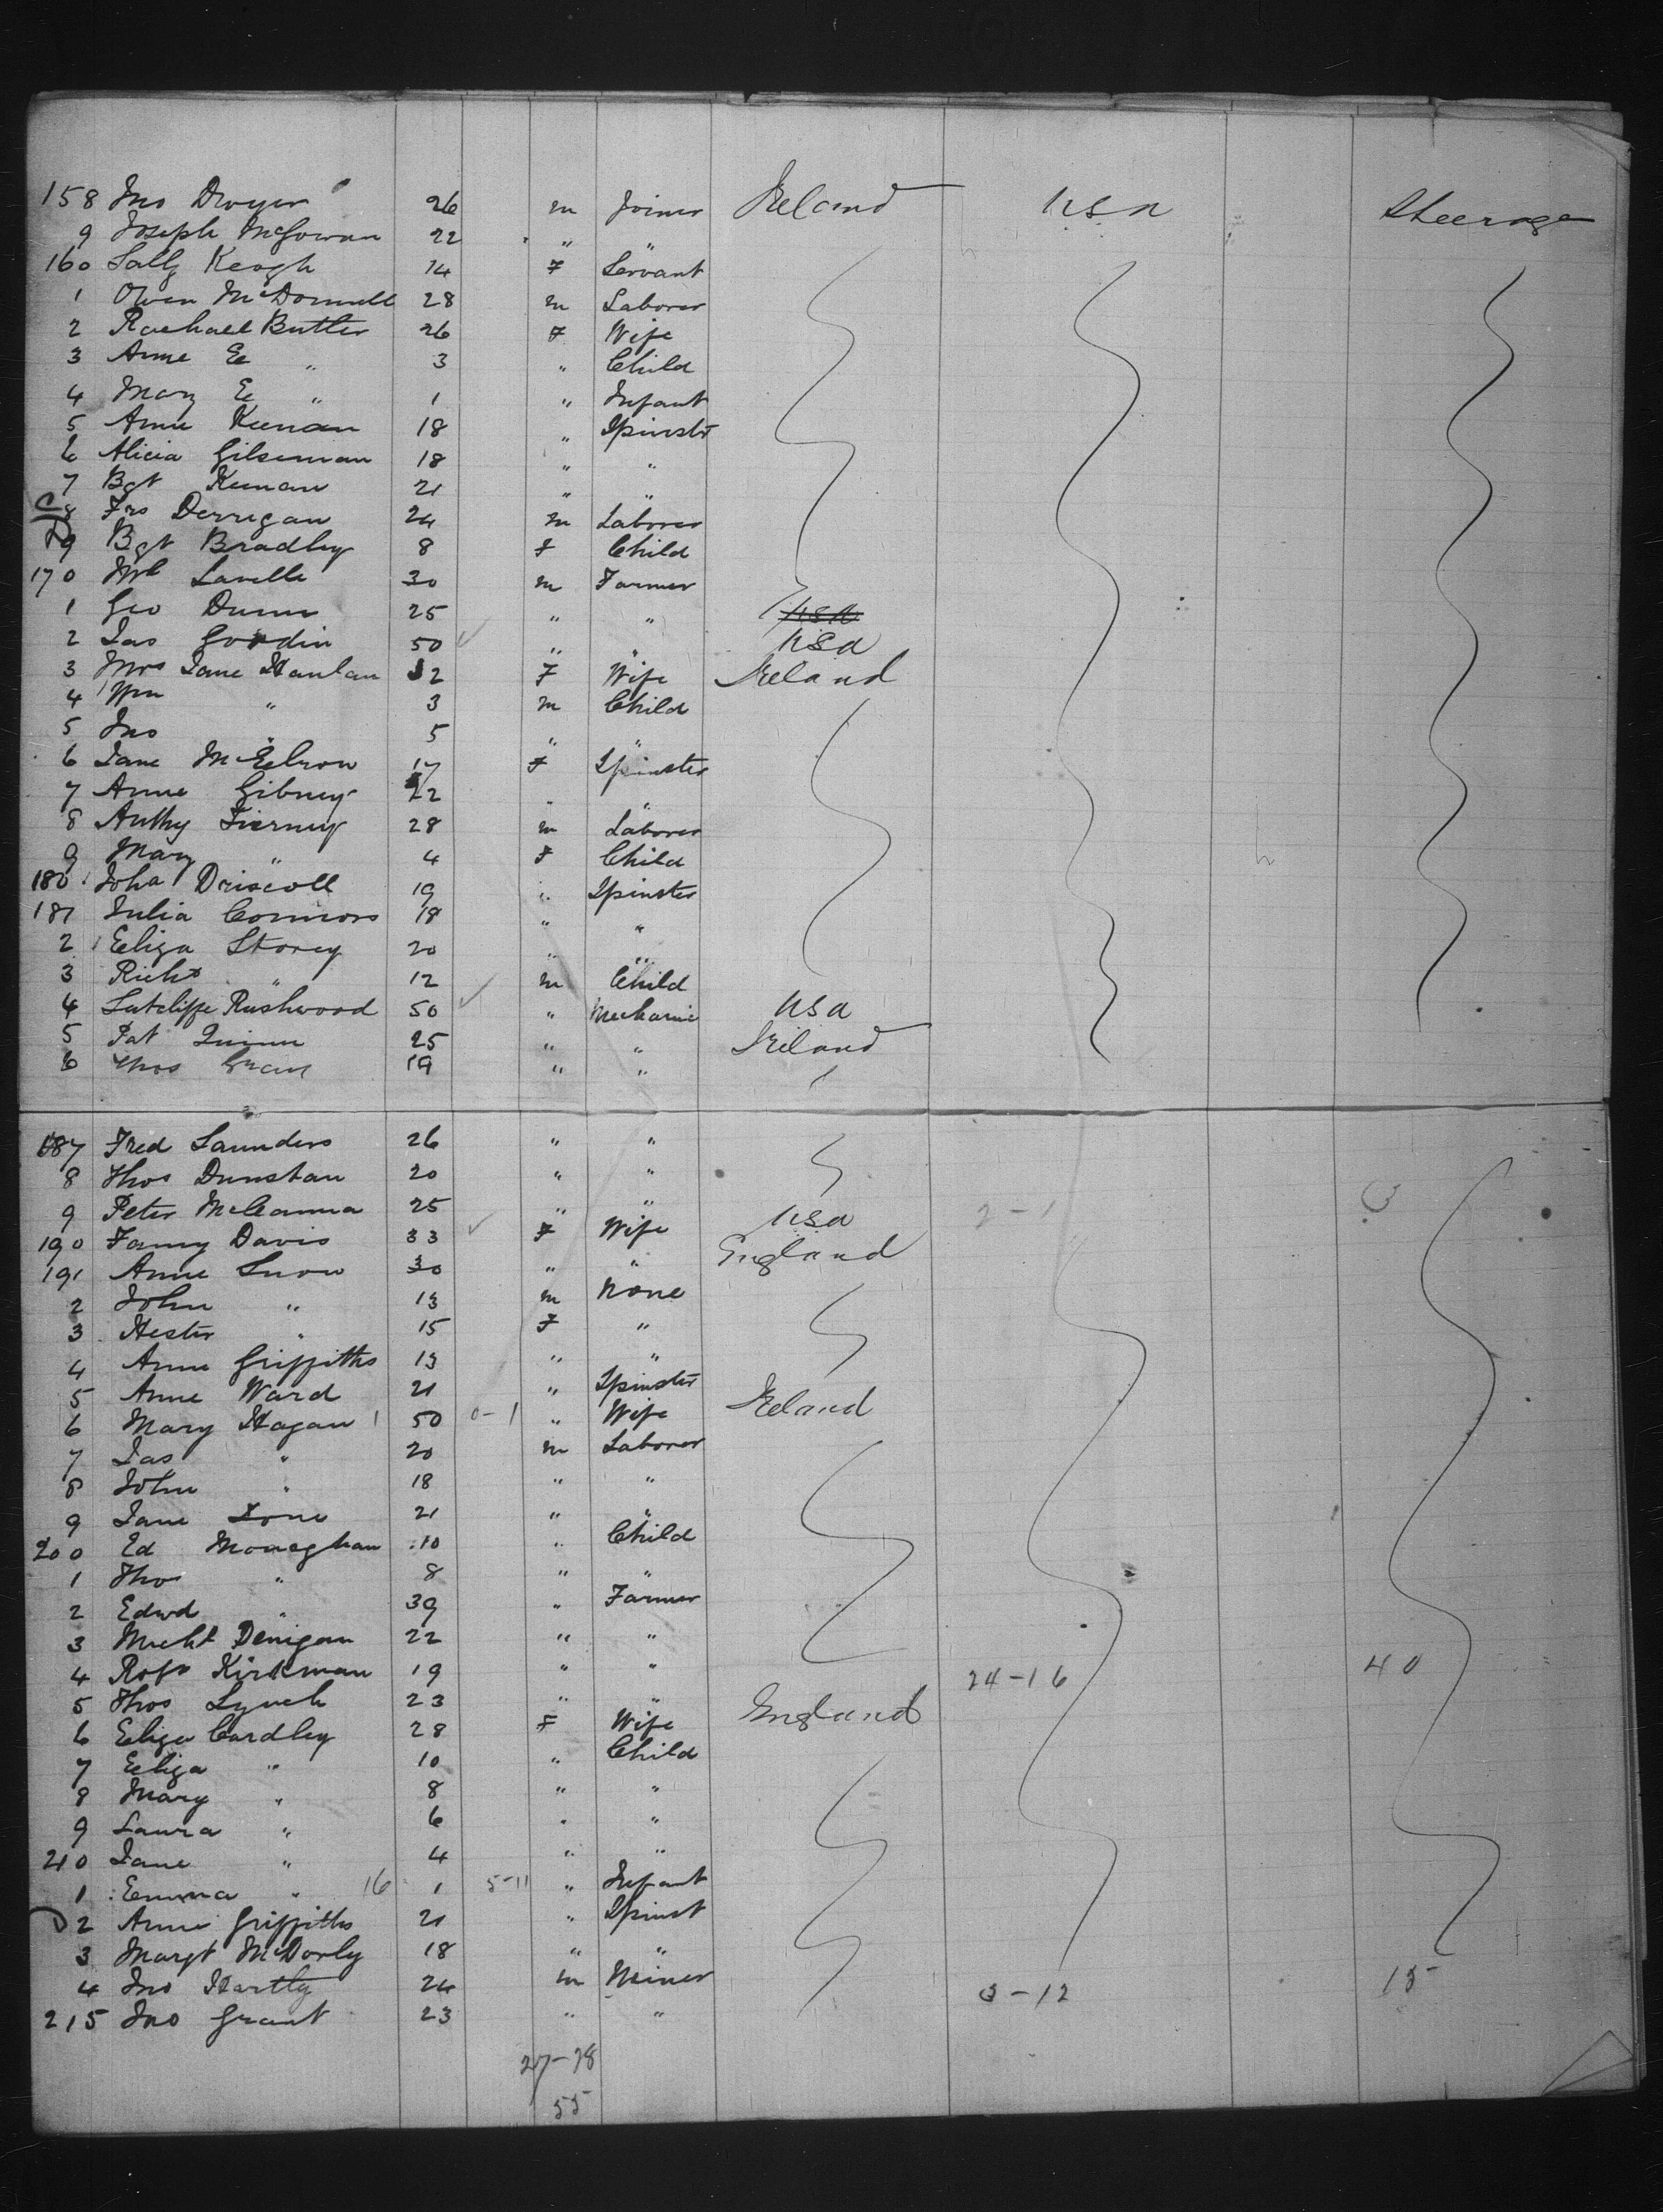 158 Jno Dwyer 26 m Joiner Ireland USA Steerage
9 Joseph McGowan 22 " "
160 Sally Keogh 14 F Servant
1 Owen McDonnell 28 m Laborer
2 Rachael Butler 26 F Wife
3 Anne E " 3 " Child
4 Mary E " 1 " Infant
5 Annie Keenan 18 " Spinstr
6 Alicia Gilsenan 18 " "
7 Bgt Keenan 21 " "
8 Frs Derrigan 24 m Laborer
9 Bgt Bradley 8 F Child
170 Ml Lavelle 30 m Farmer
1 Geo Dunn 25 " " USA
2 Jas Gordin 50 " " USA
3 Mrs Jane Hanlan 32 F Wife Ireland
4 Wm " 3 m Child
5 Jno " 5 " "
6 Jane 17 F Spinster
7 Anne Gibney 22 " "
8 Anthy Tierney 28 m Laborer
9 Mary " 4 F Child
180 Joha Driscoll 19 " Spinster
181 Julia Connors 18 " "
2 Eliza Storey 20 " "
3 Richd " 12 m Child
4 Sutcliffe Rushwood 50 " Mechanic USA
5 Pat Quinn 25 " " Ireland
6 Thos 19 " "
187 Fred Saunders 26 " "
8 Thos Dunstan 20 " "
9 Peter McCanna 25 " "
190 Fanny Davis 33 F Wife USA 2-1
191 Anne Snow 30 " " England
2 John " 13 m None
3 Hester " 15 F "
4 Anne Griffiths 13 " "
5 Anne Ward 21 " Spinstr Ireland
6 Mary Hagan 50 0-1 " Wife
7 Jas " 20 m Laborer
8 John " 18 " "
9 Jane 21 " "
200 Ed Monaghan 10 " Child
1 Tho " 8 " "
2 Edwd " 39 " Farmer
3 Michl Denigan 22 " "
4 Robt Kirkman 19 " " 24-16 40
5 Thos Lynch 23 " "
6 Eliza Cardley 28 F Wife England
7 Eliza " 10 " Child
8 Mary " 8 " "
9 Laura " 6 " "
210 Jane " 4 " "
1 Emma " 16 1 5-11 " Infant
2 Anne Griffiths 21 " Spinst
3 Margt McDorly 18 " "
4 Jno Hartley 24 m Miner 3-12 15
215 Jno Grant 23 " "
27-28
55